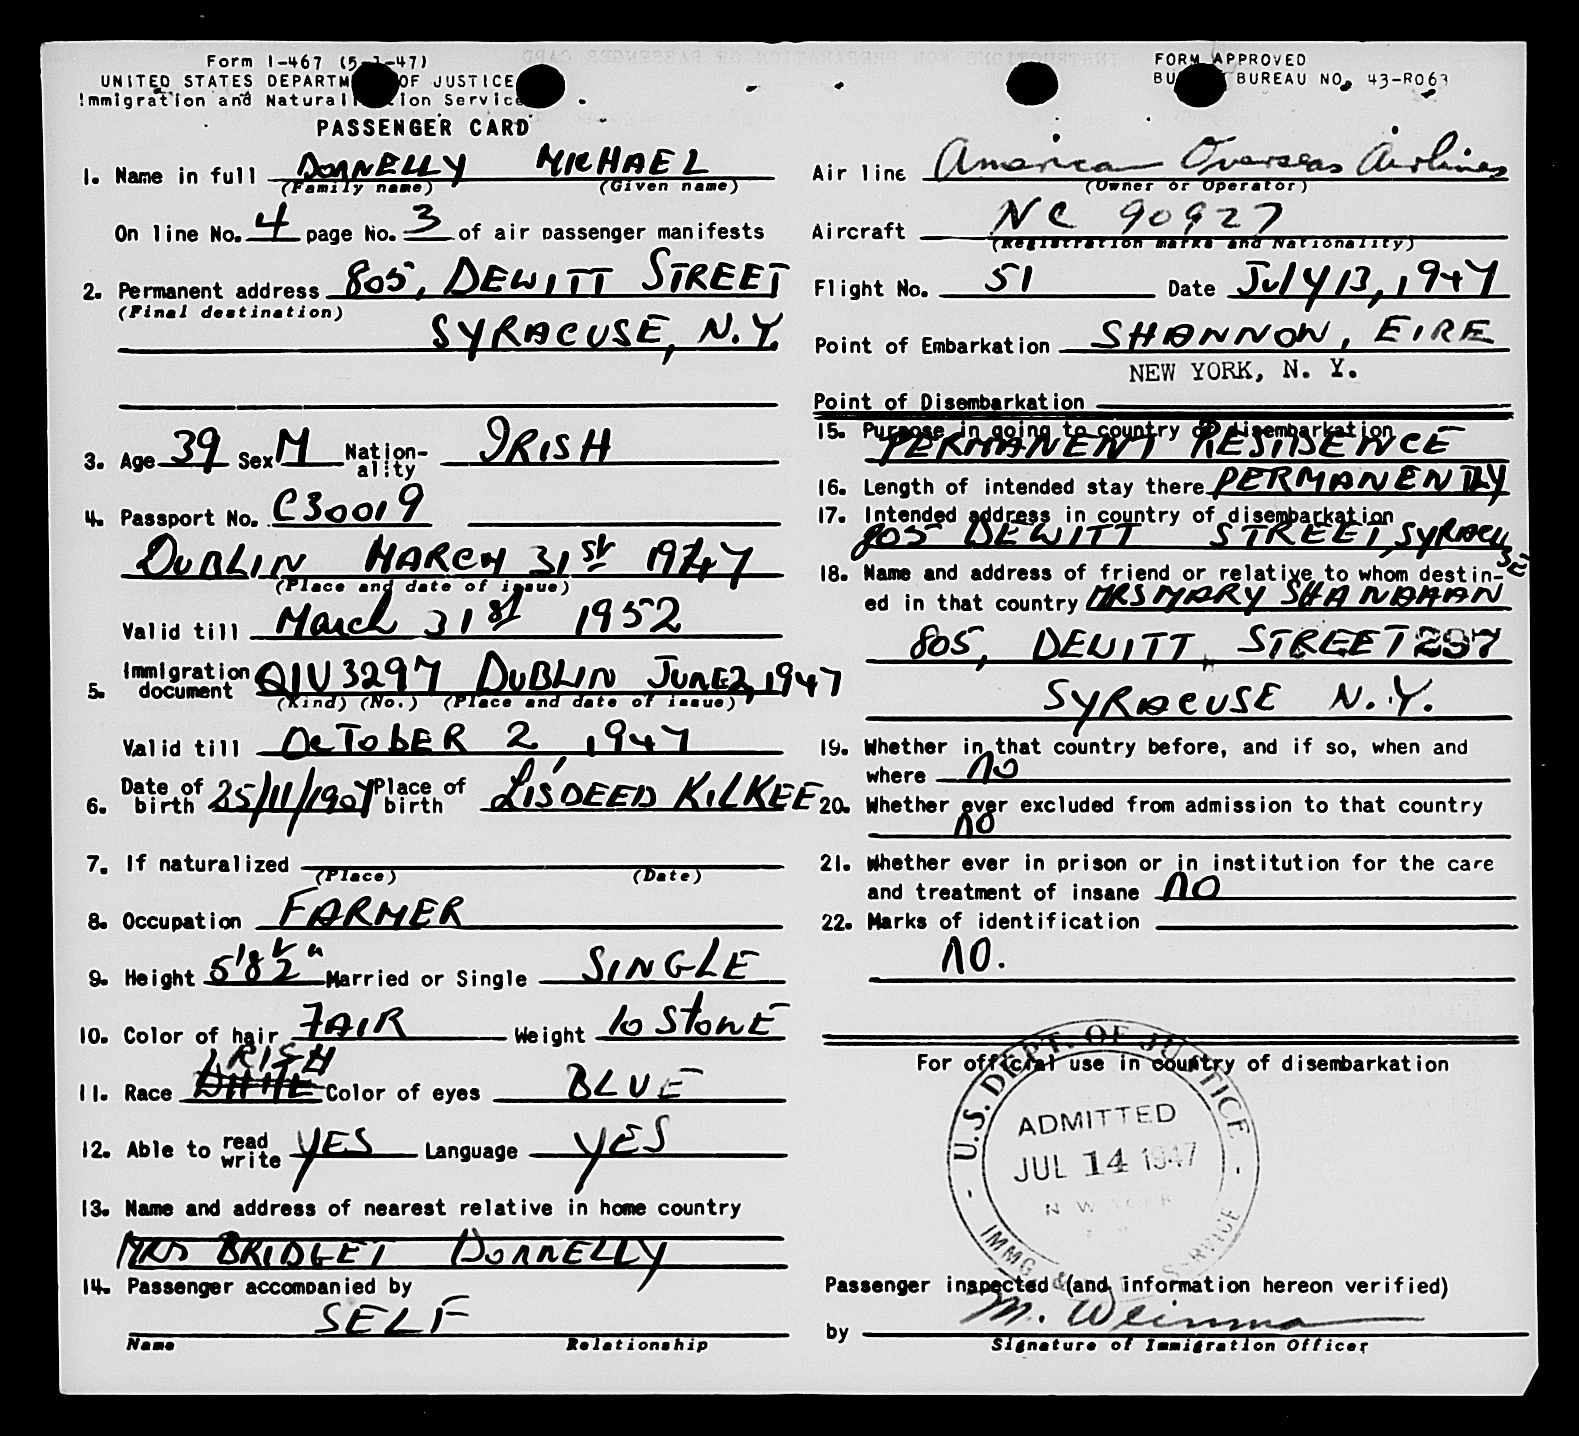 Form I-467 (5-1-47)
UNITED STATES DEPARTM OF JUSTICE
Immigration and Naturali ion Service
PASSENGER CARD
1. Name in full DONNELLY MICHAEL
(Family name) (Given name)
On line No. 4 page No. 3 of air passenger manifests
2. Permanent address 805, DEWITT STREET
(Final destination)
SYRACUSE, N.Y.
3. Age 39 Sex M Nation-ality IRISH
4. Passport No. C30019
DUBLIN MARCH 31st 1947
(Place and date of issue)
Valid till March 31st 1952
5. Immigration document QIV 3297 DUBLIN JUNE 2, 1947
(Kind) (No.) (Place and date of issue)
Valid till OCTOBER 2, 1947
6. Date of birth 25/11/1907 Place of birth LISDEED KILKEE
7. If naturalized
(Place) (Date)
8. Occupation FARMER
9. Height 5'8½" Married or Single SINGLE
10. Color of hair FAIR Weight 10 STONE
IRISH
11. Race WHITE Color of eyes BLUE
12. Able to read write YES Language YES
13. Name and address of nearest relative in home country
MRS BRIDGET DONNELLY
14. Passenger accompanied by
SELF
Name Relationship
FORM APPROVED
BU BUREAU NO. 43-R063
Air line American Overseas Airlines
(Owner or Operator)
Aircraft NC 90927
(Registration marks and Nationality)
Flight No. 51 Date July 13, 1947
Point of Embarkation SHANNON, EIRE
NEW YORK, N. Y.
Point of Disembarkation
15. Purpose in going to country of disembarkation
PERMANENT RESIDENCE
16. Length of intended stay there PERMANENTLY
17. Intended address in country of disembarkation
805 DEWITT STREET, SYRACUSE
18. Name and address of friend or relative to whom destin-
ed in that country MRS MARY SHANAHAN
805, DEWITT STREET 297
SYRACUSE N.Y.
19. Whether in that country before, and if so, when and
where NO
20. Whether ever excluded from admission to that country
NO
21. Whether ever in prison or in institution for the care
and treatment of insane NO
22. Marks of identification
NO.
For official use in country of disembarkation
U.S. DEPT. OF JUSTICE
ADMITTED
JUL 14 1947
IMMG & SERVICE
Passenger inspected (and information hereon verified)
by M. Weinman
Signature of Immigration Officer